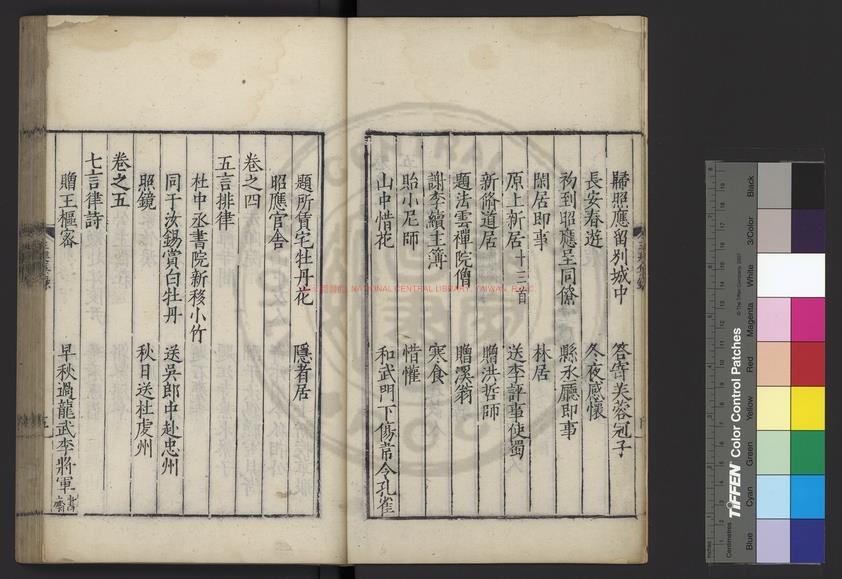 歸照應留別城中 答寄芙蓉冠子
長安春遊 冬夜感懷
初到昭應呈同僚 縣丞廳即事
閑居即事 林居
原上新居十三首 送李評事使蜀
新脩道居 贈洪哲師
題法雲禪院僧 贈溪翁
謝李續主簿 寒食
貽小尼師 惜懽
山中惜花 和武門下傷韋令孔雀
題所賃宅牡丹花 隱者居
昭應官舍
卷之四
五言排律
杜中丞書院新移小竹
同于汝錫賞白牡丹 送吳郎中赴忠州
照鏡 秋日送杜虔州
卷之五
七言律詩
贈王樞密 早秋過龍武李將軍書齋
NATIONAL CENTRAL LIBRARY, TAIWAN, R.O.C.
TIFFEN Color Control Patches
© The Tiffen Company, 2007
Centimetres
Inches
Blue
Cyan
Green
Yellow
Red
Magenta
White
3/Color
Black